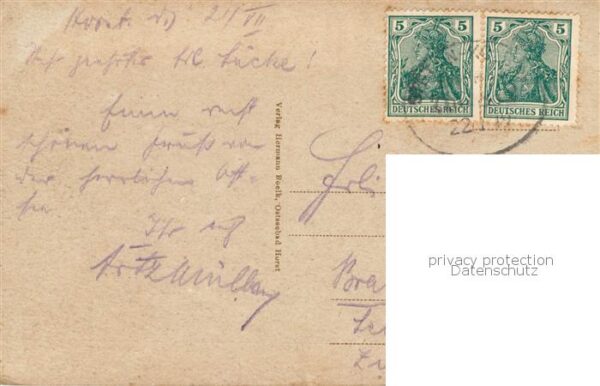 Horst, d. 21/VII
Sehr geehrtes Frl. Lücke!
Einen recht
schönen Gruß von
der herrlichen Ost-
see.
Ihr
Müller
Verlag Hermann Boelk, Ostseebad Horst
5 5
DEUTSCHES REICH
5 5
DEUTSCHES REICH
22.
Frl
Bra
privacy protection
Datenschutz